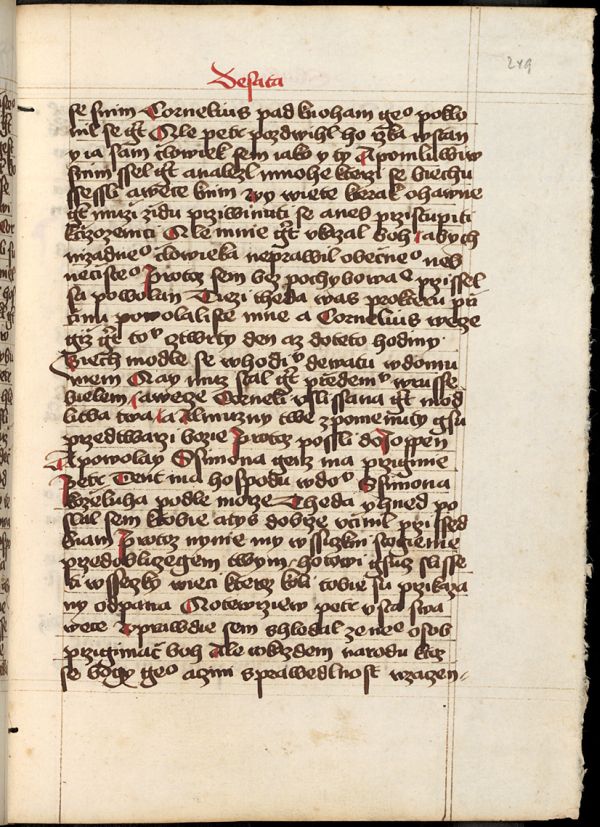 Desata
249
se snim Cornelius pad knoham geº poklo
nil se gt Ale petr pozdwihl ho rzka wstan
y ia sam clowiek sem iako y ty A pomluwiw
snim ssel gt analezl mnohe ktezi se biechu
ssessli awece knim wy wiete kerak ohawne
gt muzi zidu prziwinuti se aneb przistupiti
kczozemci Ale mnie gt vkazal boh abych
nizadneº clowieka neprawil obecneº neb
necisteº Protoz sem bez pochybowa przissel
sa powolan Tiezi theda was prokteru przi
cinu powolaliste mne a Cornelius wece
giz gt to ctwrty den az doteto hodiny
Biech modle se whodi dewatu wdomu
mem Aay muz stal gt przedemn wrusse
bielem awece Corneli vslissana gt mod
litba twa a Almuzny twe zpomenuty gsu
przedtwarzi bozie Protoz possli doJoppen
A powolay Ssimona genz ma przigmie
Petr Tent ma hospodu wdo Ssimona
kozeluha podle morze Theda yhned po
slal sem ktobie atys dobrze vcinil przissed
knam Protoz nynie my wssickni stogieme
przedoblizegem twym hotowi gsuc slysse
ti wssecky wieci kterez koli tobie su przikaza
ny odpana Aotewrziew petr vsta swa
wece Vprawdie sem shledal ze neº osob
przigimac boh Ale wkazdem narodu ktoz
se bogy geº aczini sprawedlnost wzacen